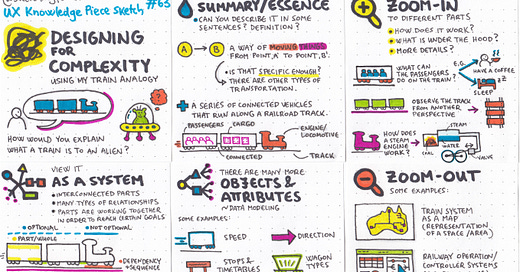 UX Knowledge Piece Sketch #63
DESIGNING
FOR
COMPLEXITY
USING MY TRAIN ANALOGY
HOW WOULD YOU EXPLAIN
WHAT A TRAIN IS TO AN ALIEN?
SUMMARY/ESSENCE
CAN YOU DESCRIBE IT IN SOME
SENTENCES? DEFINITION?
A
B
A WAY OF MOVING THINGS
FROM POINT 'A' TO POINT 'B'.
IS THAT SPECIFIC ENOUGH?
THERE ARE OTHER TYPES OF
TRANSPORTATION.
A SERIES OF CONNECTED VEHICLES
THAT RUN ALONG A RAILROAD TRACK.
PASSENGERS
CARGO
ENGINE/
LOCOMOTIVE
CONNECTED
TRACK
ZOOM-IN
TO DIFFERENT PARTS
HOW DOES IT WORK?
WHAT IS UNDER THE HOOD?
MORE DETAILS?
WHAT CAN
THE PASSENGERS
DO ON THE TRAIN?
E.G.
HAVE A COFFEE
SLEEP
OBSERVE THE TRACK
FROM ANOTHER
PERSPECTIVE
HOW DOES
A STEAM
ENGINE
WORK?
STEAM
WATER
COAL
VALVE
VIEW IT
AS A SYSTEM
INTERCONNECTED PARTS
MANY TYPES OF RELATIONSHIPS
PARTS ARE WORKING TOGETHER
IN ORDER TO REACH CERTAIN GOALS
OPTIONAL
NOT OPTIONAL
PART/WHOLE
DEPENDENCY
SEQUENCE
THERE ARE MANY MORE
OBJECTS &
ATTRIBUTES
~ DATA MODELING
SOME EXAMPLES:
SPEED
DIRECTION
STOPS &
TIMETABLES
WAGON
TYPES
ZOOM-OUT
SOME EXAMPLES:
TRAIN SYSTEM
AS A MAP
(REPRESENTATION
OF A SPACE/AREA)
RAILWAY OPERATION/
CONTROLLER SYSTEMS